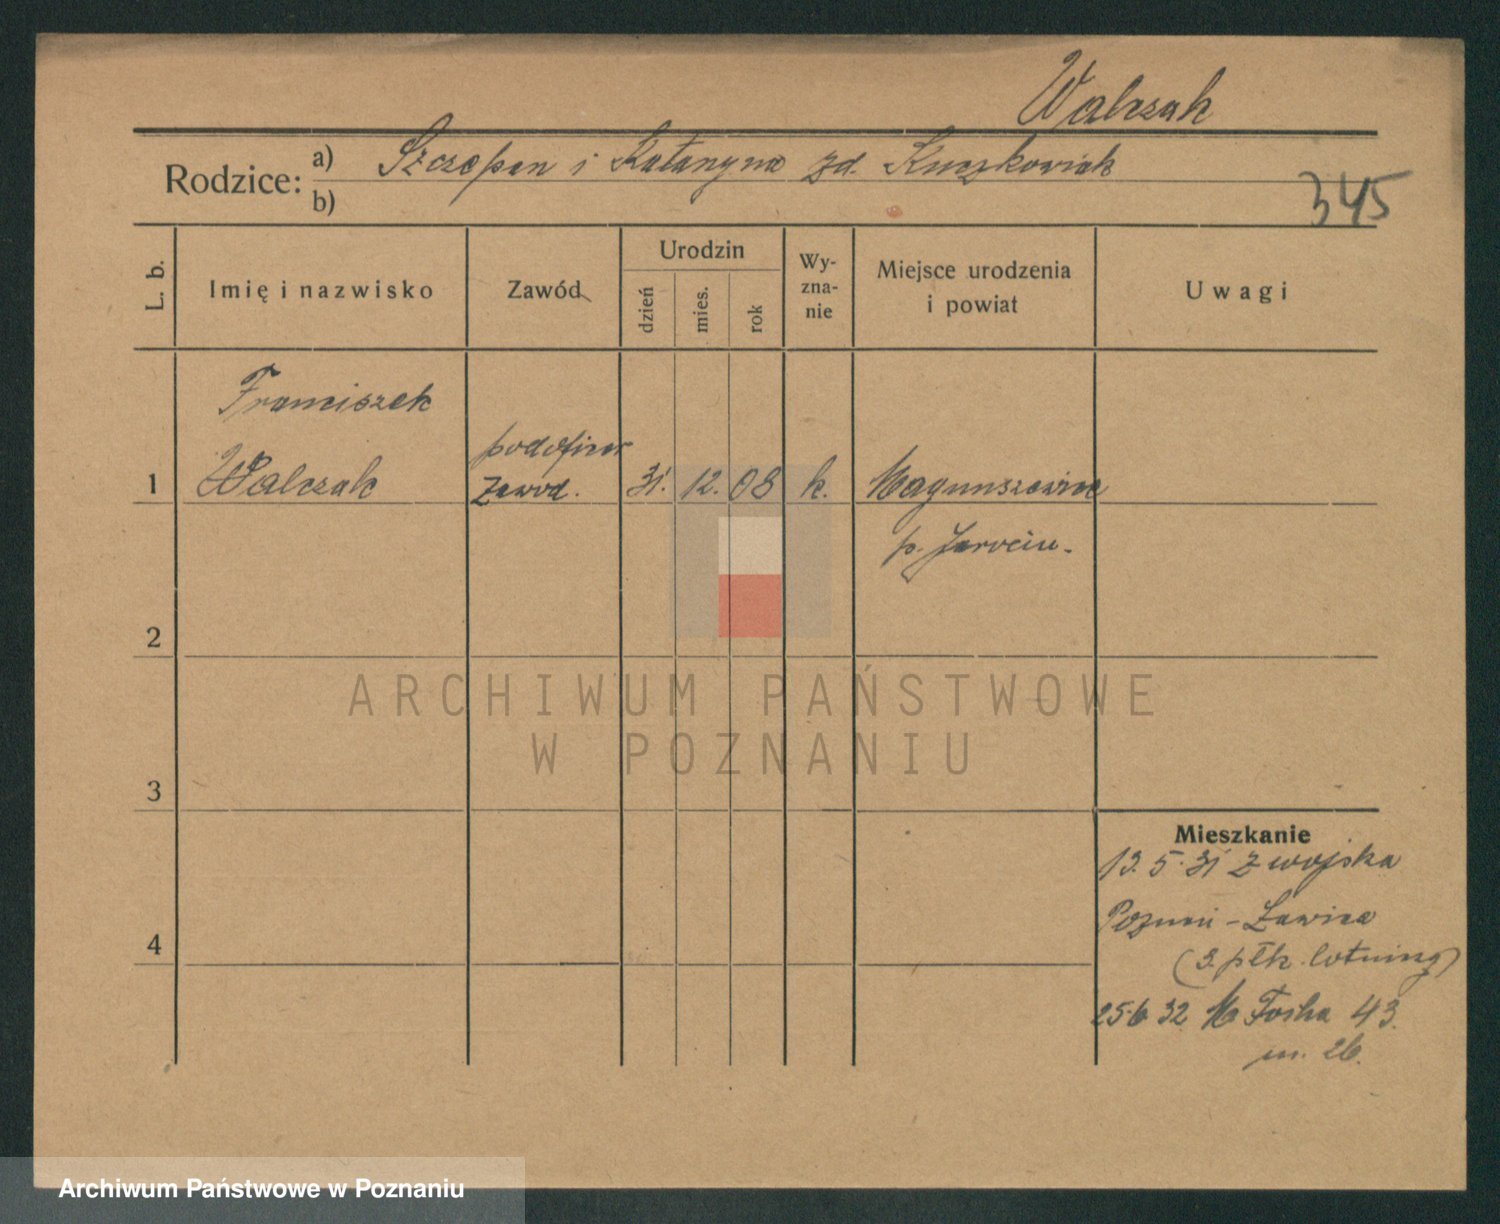 Walczak
Rodzice: a) Szczepan i Katarzyna zd. Kuczkowiak
b)
345
L. b.
Imię i nazwisko
Zawód
Urodzin
dzień
mies.
rok
Wy-
zna-
nie
Miejsce urodzenia
i powiat
Uwagi
Franciszek
1 Walczak
podoficer
zawod.
31. 12. 08 k. Maguszewice
p. Jarocin.
2
3
4
Mieszkanie
13.5.31 z wojska
Poznań - Ławica
(3. płk. lotniczy)
25.6 32 M Focha 43.
m. 26.
ARCHIWUM PAŃSTWOWE
W POZNANIU
Archiwum Państwowe w Poznaniu